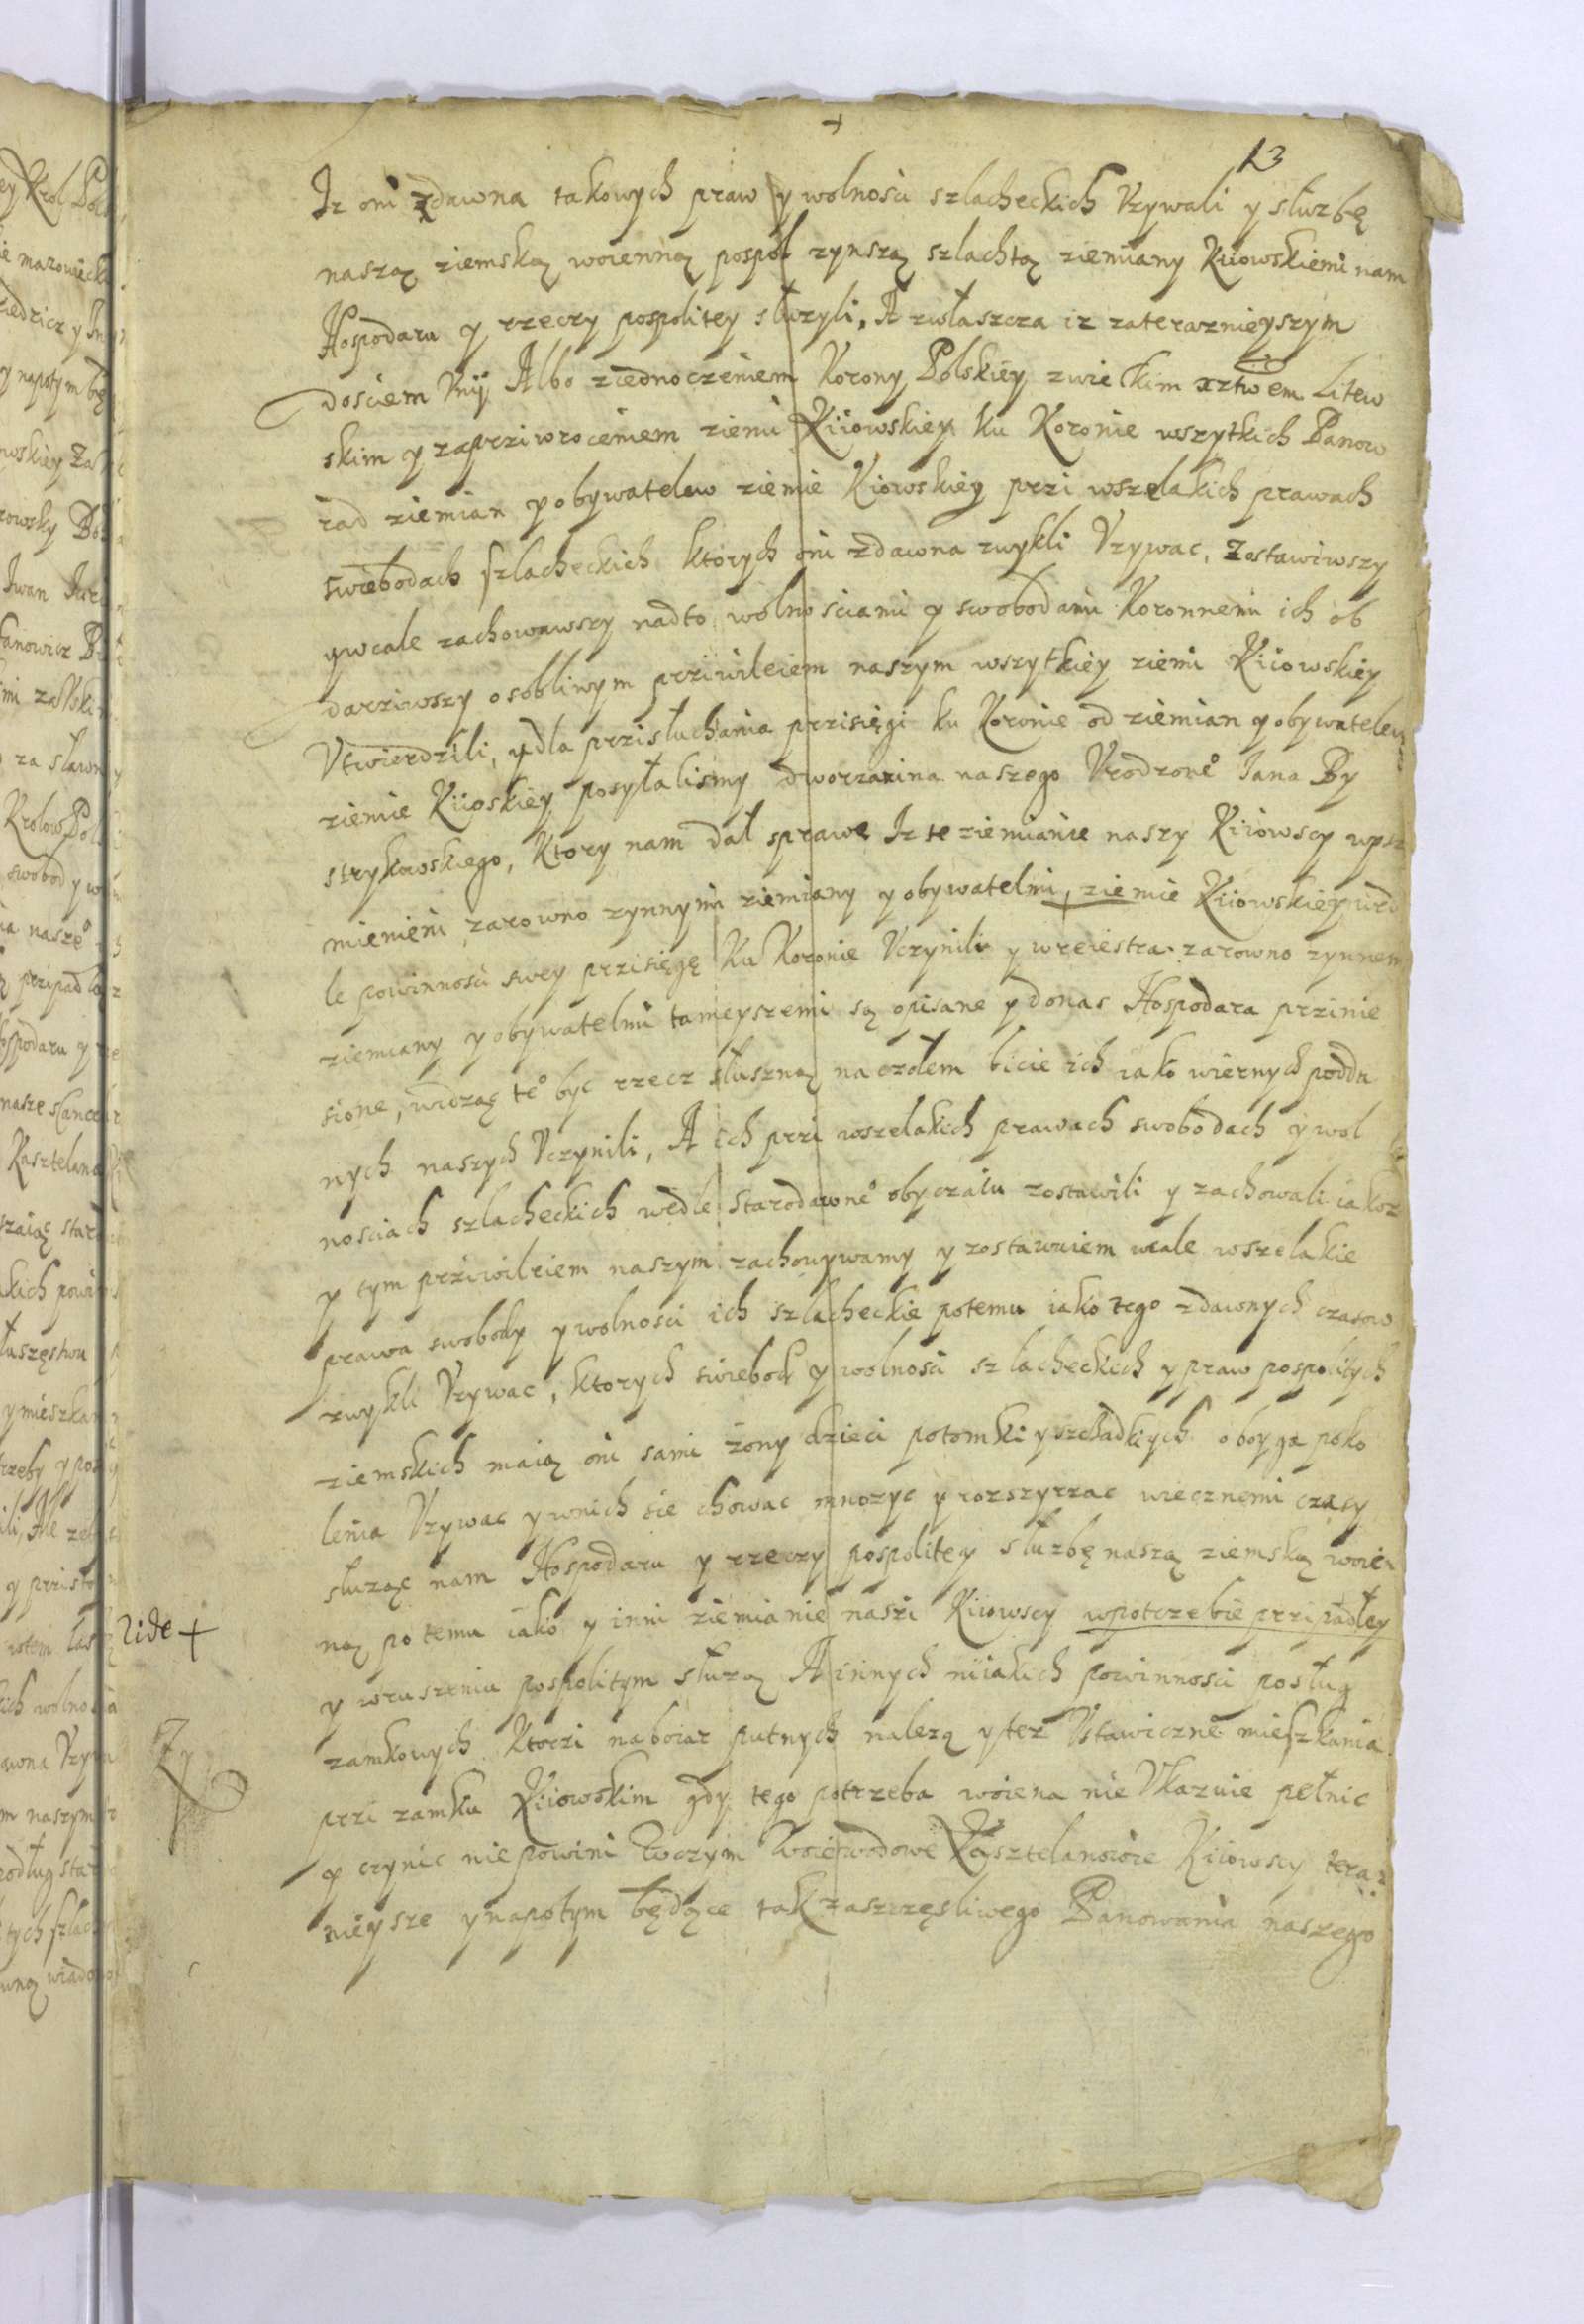 13
Iz oni zdawna takowych praw y wolnosci szlacheckich Vzywali y słuzbę
naszą ziemską woienną pospół zynszą szlachtą ziemiany Kiiowskiemi nam
Hospodaru y rzeczy pospolitey słuzyli, A zwłaszcza iz zateraznieyszym
dosciem Vnij Albo ziednoczeniem Korony Polskiey zwielkim xztwem Litew
skim y zaprziwroceniem ziemi Kiiowskiey ku Koronie wszytkich Panow
rad ziemian y obywatelow ziemie Kiowskiey przi wszelakich prawach
swiebodach szlacheckich których oni zdawna zwykli Vzywac, Zostawiwszy
ywcale zachowawszy nadto wolnosciami y swobodami Koronnemi ich ob
darziwszy osobliwym prziwileiem naszym wszytkiey ziemi Kiiowskiey
Vtwierdzili, ydla przisłuchania przisięgi ku Koronie od ziemian y obywatelew
ziemie Kiioskiey posyłalismy dworzanina naszego Vrodzone° Iana By
strykowskiego, Ktory nam dał sprawę Iz te ziemianie naszy Kiiowscy wysz
mienieni zarowno zynnymi ziemiany y obywatelmi, ziemie Kiiowskiey wed
le powinnosci swey przisięgę Ku Koronie Vczynili y wreiestra zarowno zynnemi
ziemiany y obywatelmi tameyszemi są opisane ydonas Hospodara przinie
sione, widząc te° byc rzecz słuszną naczołem bicie ich iako wiernych podda
nych naszych Vczynili, A ich przi wszelakich prawach swobodach y wol
nosciach szlacheckich wedle starodawne° obyczaiu zostawili y zachowali iakoz
y tym prziwileiem naszym zachowywamy y zostawuiem wcale wszelakie
prawa swobody y wolnosci ich szlacheckie potemu iako tego zdawnych czasow
zwykli Vzywac, ktorych swiebod y wolnosci szlacheckich y praw pospolitych
ziemskich maią oni sami żony dzieci potomki y szczadki ych oboyga poko
lenia Vzywac y wnich sie chowac mnozyc y rozszyrzac wiecznemi czasy
słuząc nam Hospodaru y rzeczy pospolitey słuzbę naszą ziemską woien
ną po temu iako y inni ziemianie naszi Kiiowscy wpotrzebie przipadłey
y wruszeniu pospolitym słuzą A innych niiakich powinnosci posług
zamkowych Ktorzi naboiar putnych nalezą ytez Vstawiczne° mieszkania
przi zamku Kiiowskim gdy tego potrzeba woiena nie Vkazuie pełnic
y czynic niepowini Wczym Woiewodowe Kasztelanowie Kiiowscy teraz
nieysze ynapotym będące tak zaszczęsliwego Panowania naszego
vide +